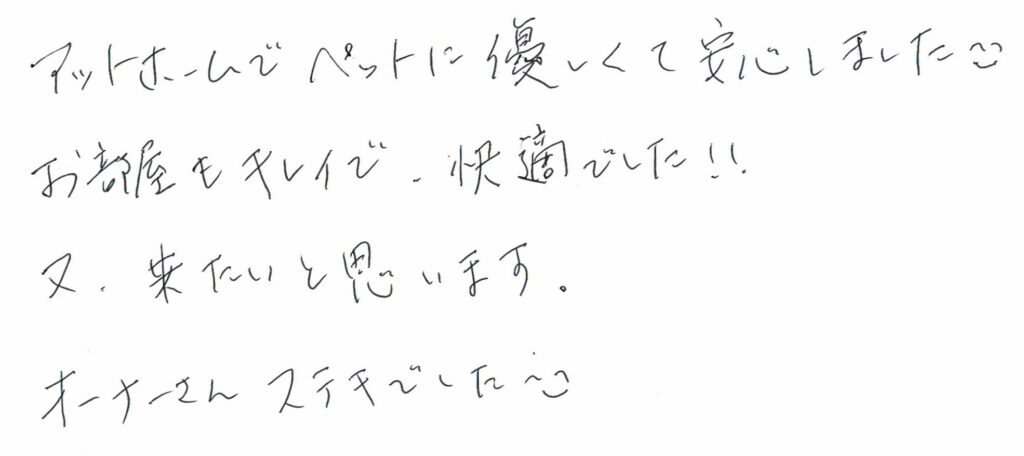 アットホームでペットに優しくて安心しました
お部屋もキレイで、快適でした!!
又、来たいと思います。
オーナーさん ステキでした